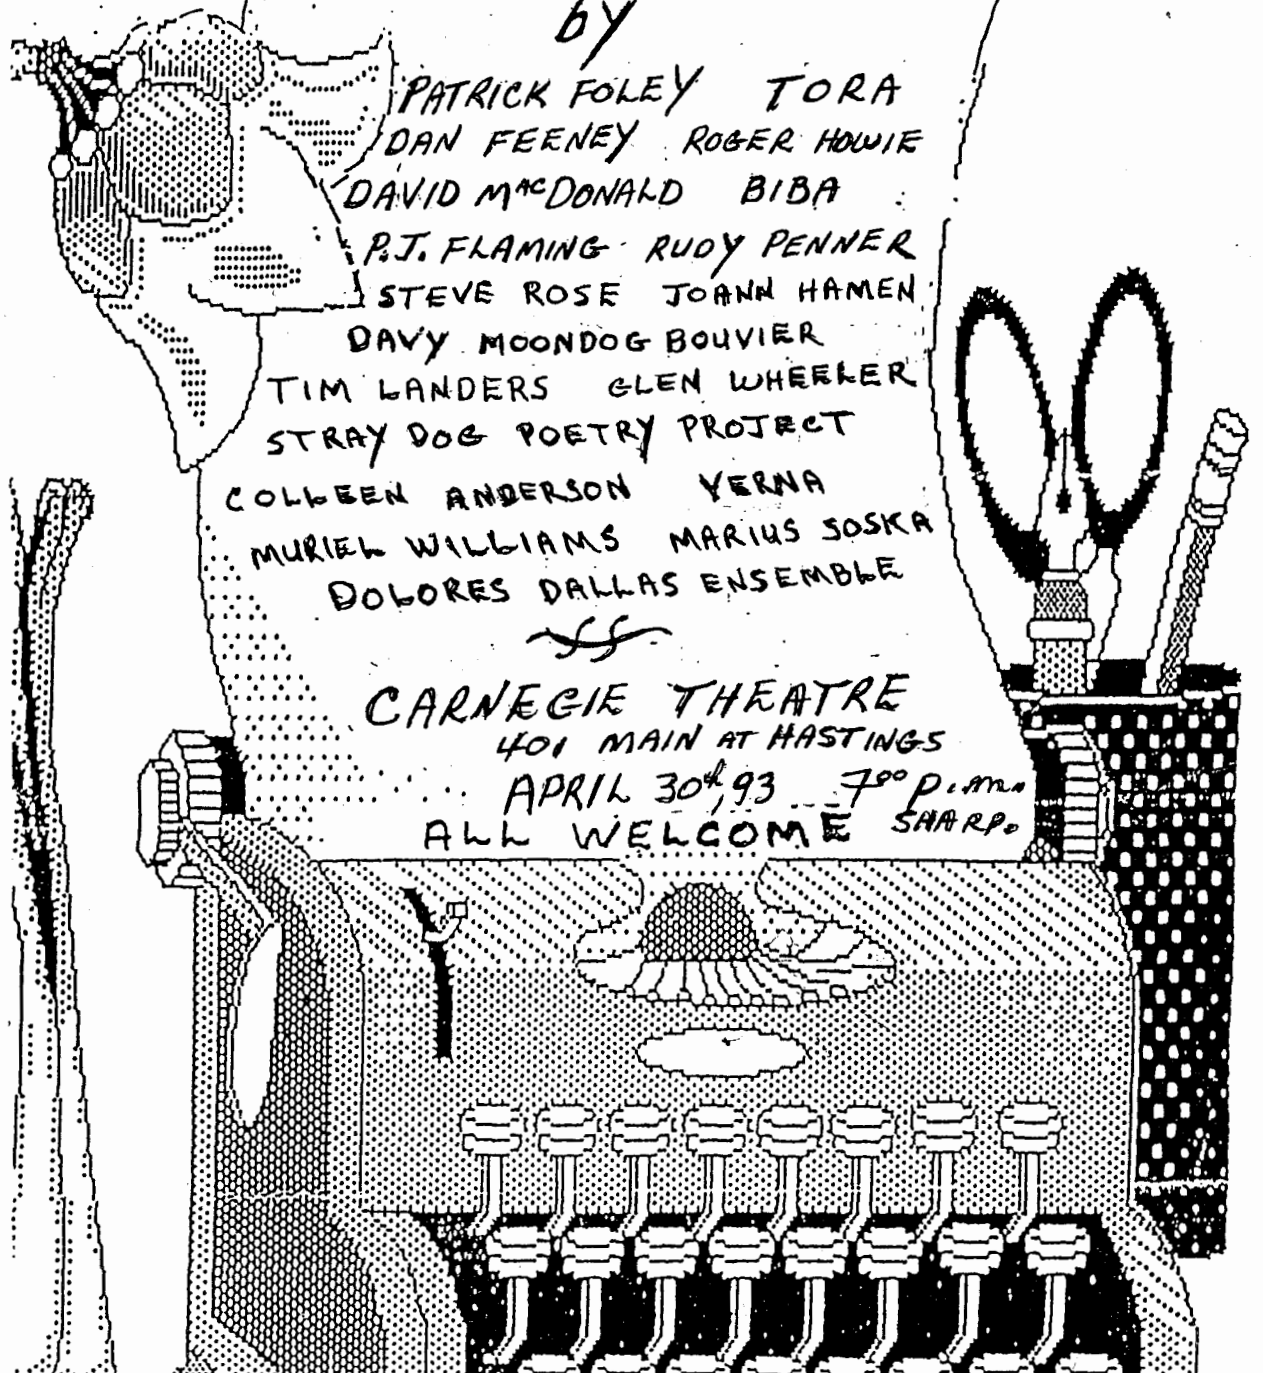 by
PATRICK FOLEY TORA
DAN FEENEY ROGER HOWIE
DAVID MacDONALD BIBA
P.J. FLAMING RUDY PENNER
STEVE ROSE JOANN HAMEN
DAVY MOONDOG BOUVIER
TIM LANDERS GLEN WHEELER
STRAY DOG POETRY PROJECT
COLLEEN ANDERSON VERNA
MURIEL WILLIAMS MARIUS SOSKA
DOLORES DALLAS ENSEMBLE
CARNEGIE THEATRE
401 MAIN AT HASTINGS
APRIL 30th, 93 7:00 p.m.
ALL WELCOME SHARP.